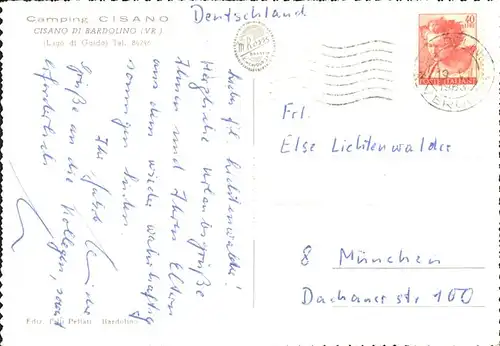 Camping CISANO
CISANO DI BARDOLINO (VR)
(Lago di Garda) Tel.
Deutschland
40
LIRE
POSTE ITALIANE
Liebe Frl. Lichtenwalder!
Herzliche Urlaubsgrüße
Ihnen und Ihren Eltern
aus dem wieder wahrhaftig
sonnigen Süden
Ihr
Grüße an die Kollegen, samt
Frl.
Else Lichtenwalder
8 München
Dachauerstr 100
Ediz. Pellati Bardolino